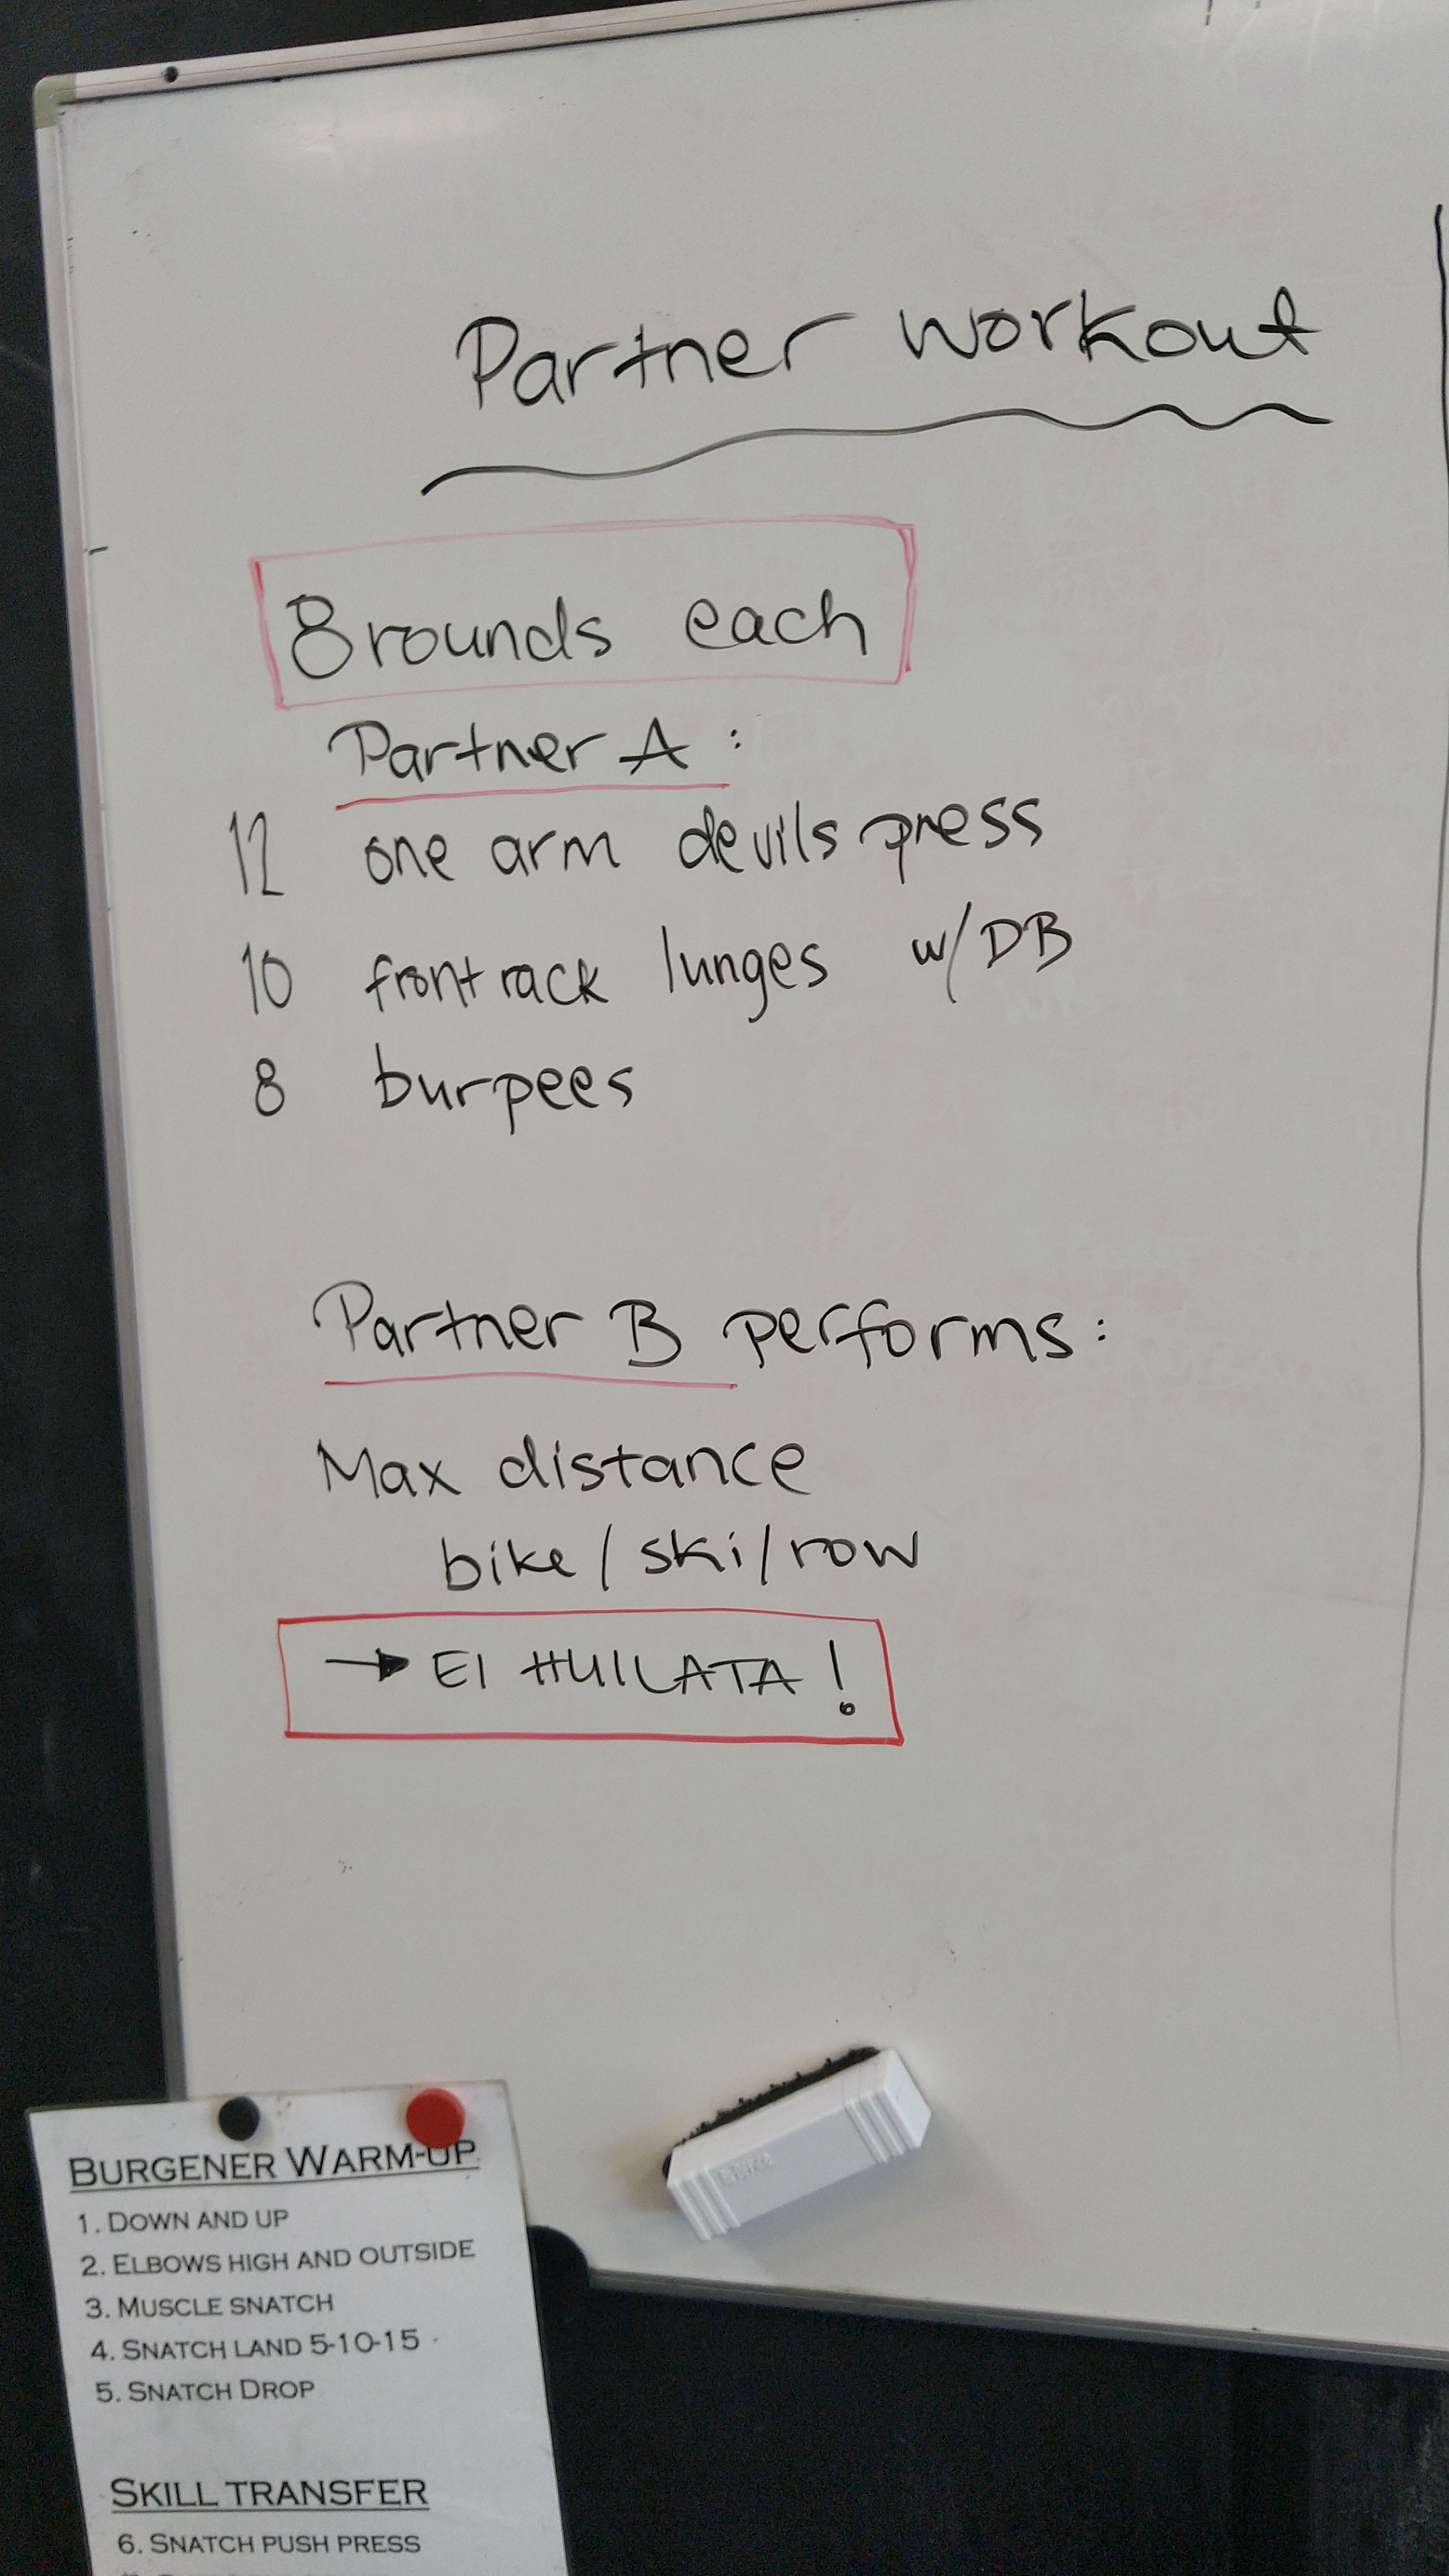 Partner workout
8 rounds each
Partner A :
12 one arm devils press
10 front rack lunges w/DB
8 burpees
Partner B performs :
Max distance
bike / ski / row
→ EI HUILATA !
BURGENER WARM-UP
1. DOWN AND UP
2. ELBOWS HIGH AND OUTSIDE
3. MUSCLE SNATCH
4. SNATCH LAND 5-10-15
5. SNATCH DROP
SKILL TRANSFER
6. SNATCH PUSH PRESS